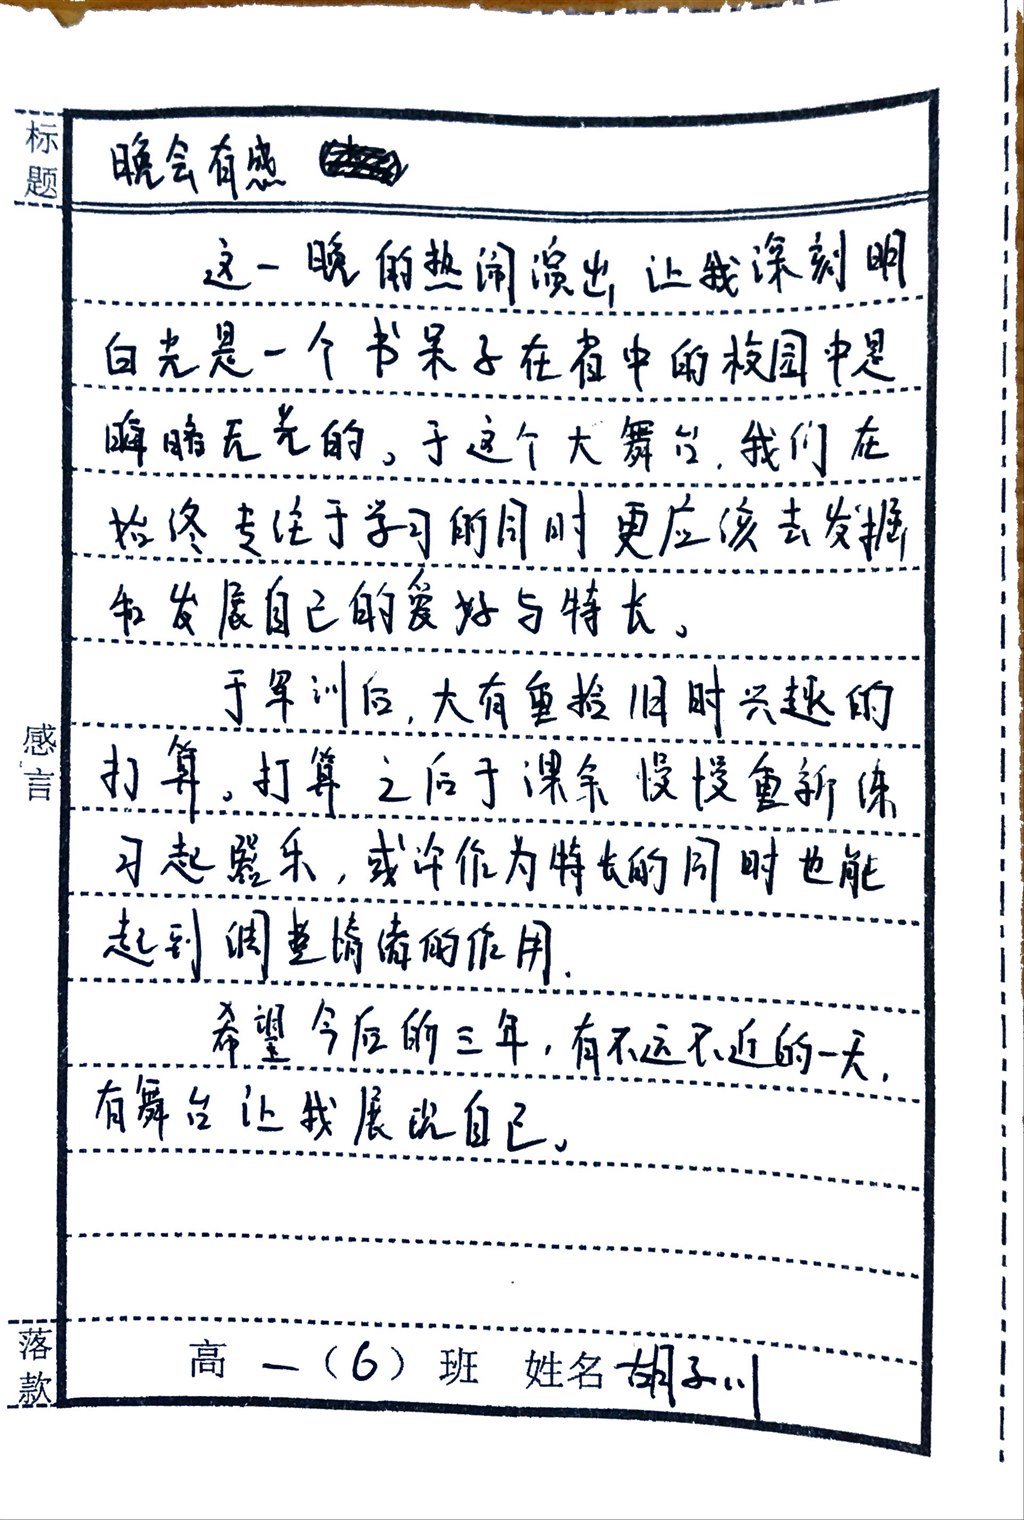 标题
晚会有感
这一晚的热闹演出,让我深刻明
白光是一个书呆子在省中的校园中是
暗暗无光的。于这个大舞台,我们在
始终专注于学习的同时更应该去发掘
和发展自己的爱好与特长。
于军训后,大有重拾旧时兴趣的
打算。打算之后于课余慢慢重新练
习起器乐,或许作为特长的同时也能
起到调整情绪的作用.
希望今后的三年,有不远不近的一天,
有舞台让我展现自己。
感言
落款
高一(6)班 姓名胡子川